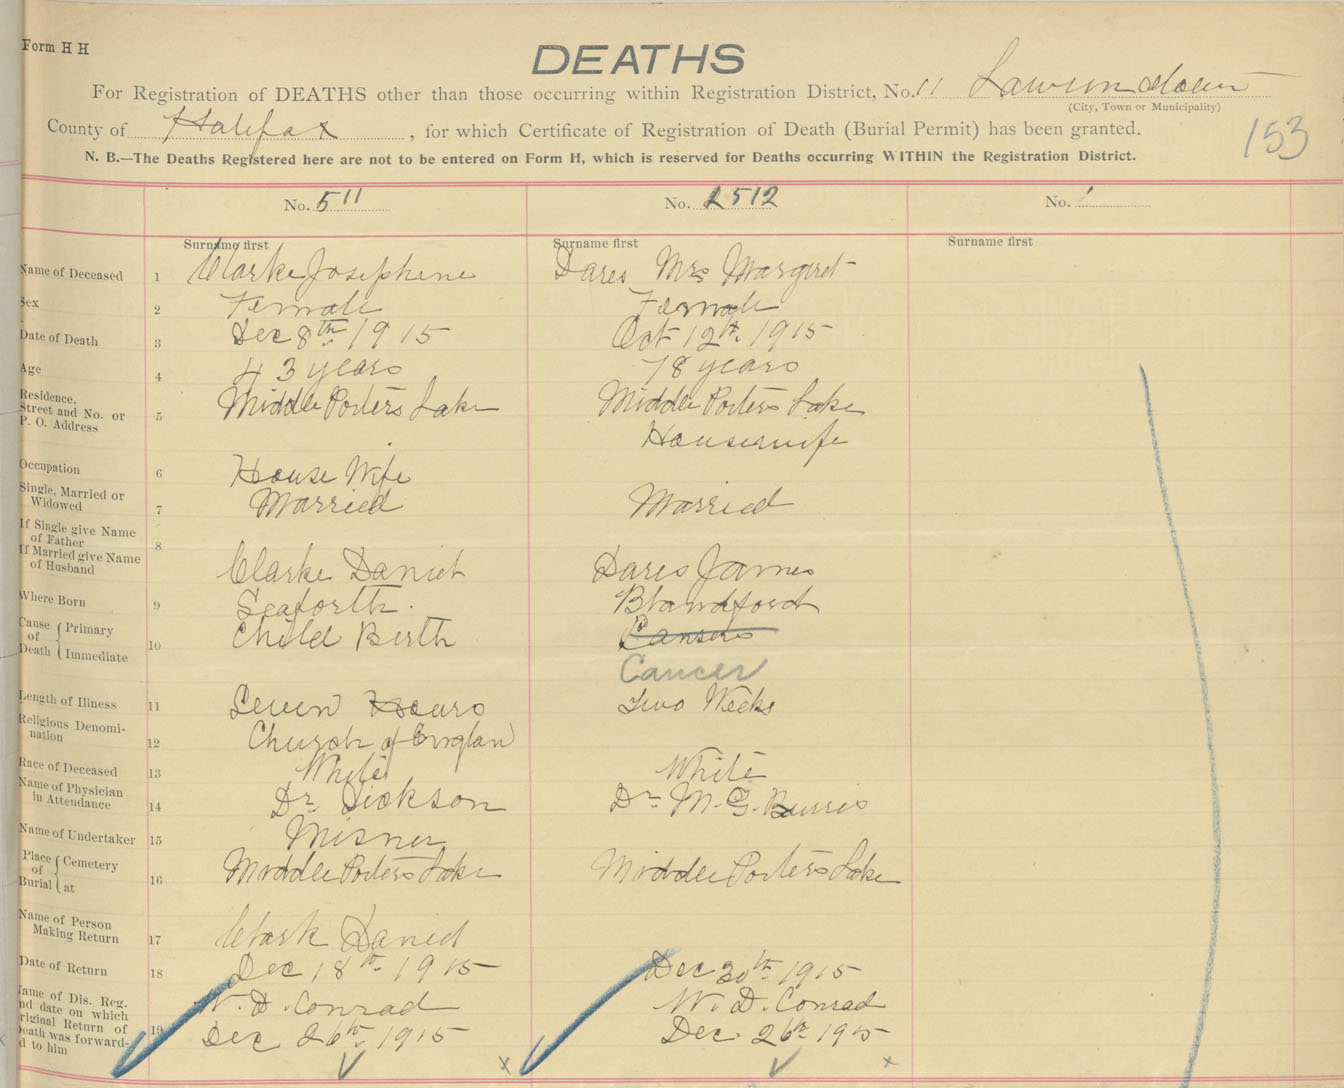 Form H H
DEATHS
For Registration of DEATHS other than those occurring within Registration District, No. 11
(City, Town or Municipality)
County of Halifax, for which Certificate of Registration of Death (Burial Permit) has been granted.
153
N. B.—The Deaths Registered here are not to be entered on Form H, which is reserved for Deaths occurring WITHIN the Registration District.
No. 511 No. 2512 No.
Surname first Surname first Surname first
Name of Deceased 1 Clarke Josephine Dares Mrs Margret
Sex 2 Female Female
Date of Death 3 Dec 8th 1915 Oct 12th 1915
Age 4 43 years 78 years
Residence,
Street and No. or
P. O. Address 5 Middle Porters Lake Middle Porters Lake
Housewife
Occupation 6 House Wife
Single, Married or
Widowed 7 Married Married
If Single give Name
of Father 8
If Married give Name
of Husband Clarke Daniel Dares James
Where Born 9 Seaforth Blandford
Cause of Death { Primary 10 Child Birth
Immediate Cancer
Length of Illness 11 Seven Hours Two Weeks
Religious Denomi-
nation 12 Church of Englan
Race of Deceased 13 White White
Name of Physician
in Attendance 14 Dr Dickson Dr M. G. Burris
Name of Undertaker 15 Misner
Place of Burial { Cemetery
at 16 Middle Porters Lake Middle Porters Lake
Name of Person
Making Return 17 Clark Daniel
Date of Return 18 Dec 18th 1915 Dec 30th 1915
ame of Dis. Reg.
nd date on which
riginal Return of
eath was forward-
d to him 19 W. D. Conrad W. D. Conrad
Dec 26th 1915 Dec. 26th 1915